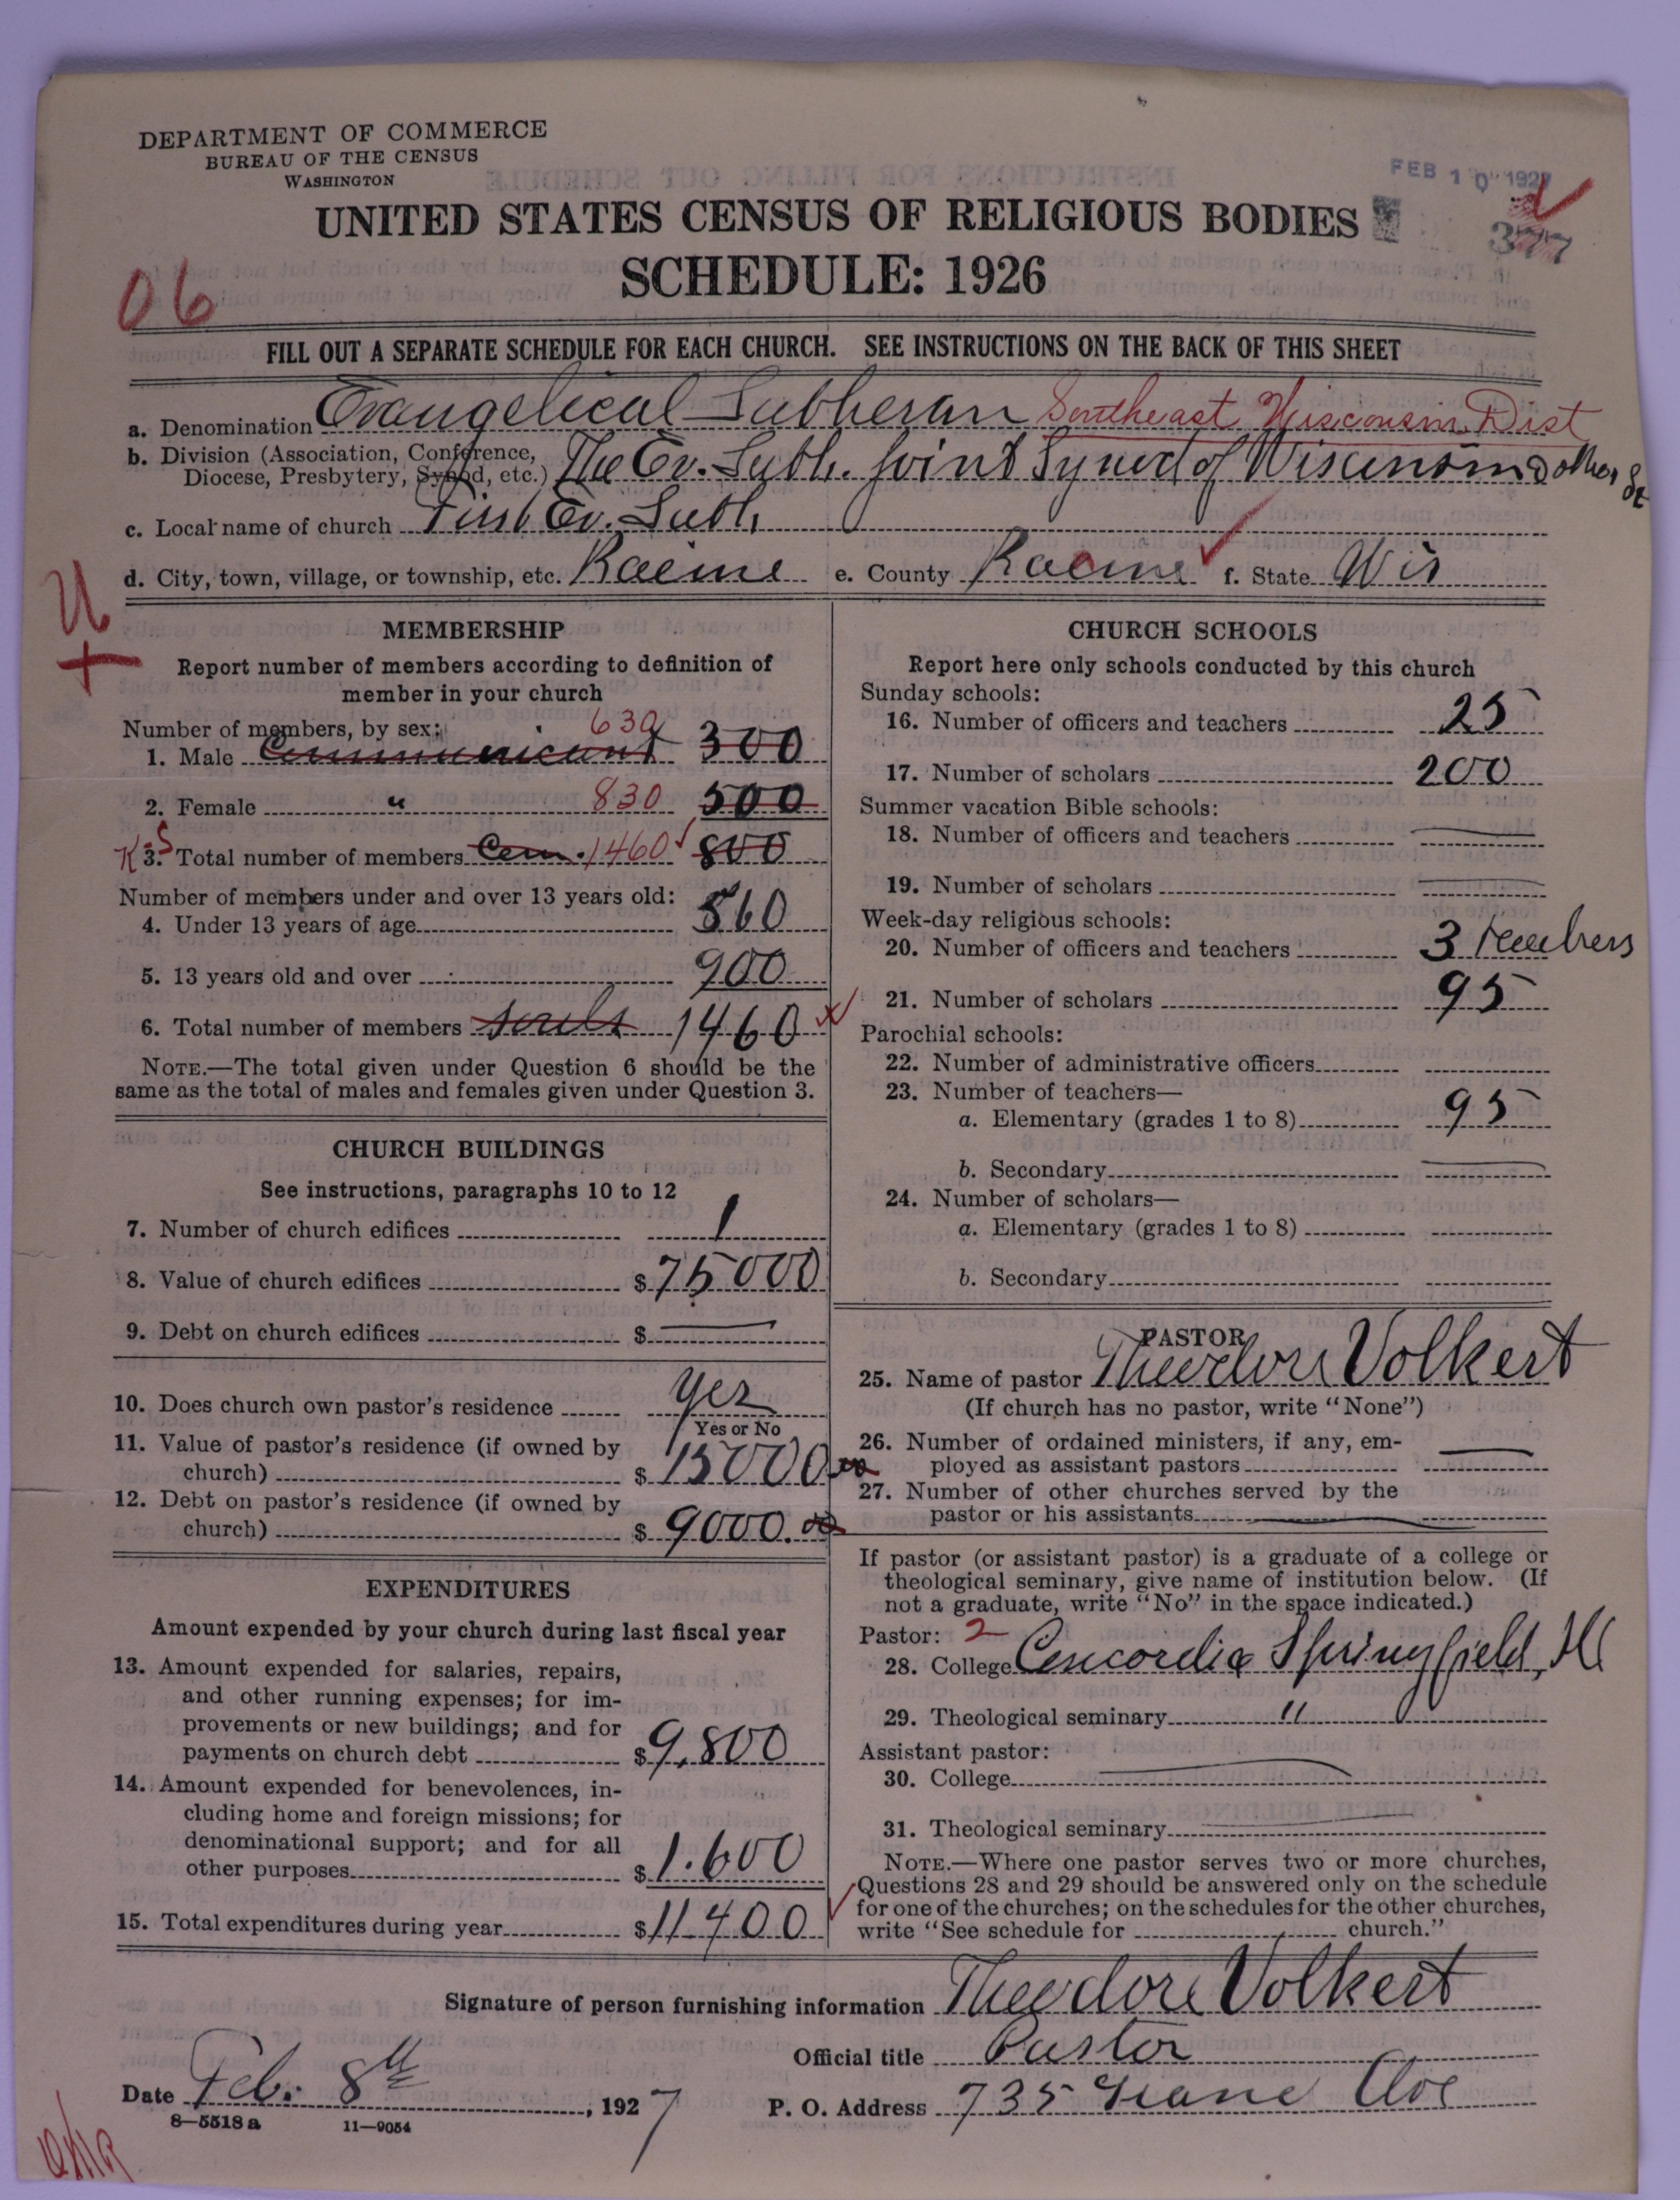 DEPARTMENT OF COMMERCE
BUREAU OF THE CENSUS
WASHINGTON
FEB 10 1927
UNITED STATES CENSUS OF RELIGIOUS BODIES
377
SCHEDULE: 1926
06
FILL OUT A SEPARATE SCHEDULE FOR EACH CHURCH. SEE INSTRUCTIONS ON THE BACK OF THIS SHEET
a. Denomination Evangelical Lutheran Southeast Wisconsin Dist
b. Division (Association, Conference, Diocese, Presbytery, Synod, etc.) The Ev. Luth. Joint Synod of Wisconsin & other St
c. Local name of church First Ev. Luth.
d. City, town, village, or township, etc. Racine e. County Racine f. State Wis
MEMBERSHIP
Report number of members according to definition of
member in your church
Number of members, by sex:
1. Male Communicant 630 300
2. Female " 830 500
3. Total number of members Com. 1460 800
Number of members under and over 13 years old:
4. Under 13 years of age 560
5. 13 years old and over 900
6. Total number of members souls 1460
NOTE.—The total given under Question 6 should be the
same as the total of males and females given under Question 3.
CHURCH BUILDINGS
See instructions, paragraphs 10 to 12
7. Number of church edifices 1
8. Value of church edifices $75000
9. Debt on church edifices $ —
10. Does church own pastor's residence yes
Yes or No
11. Value of pastor's residence (if owned by
church) $15000.00
12. Debt on pastor's residence (if owned by
church) $9000.00
EXPENDITURES
Amount expended by your church during last fiscal year
13. Amount expended for salaries, repairs,
and other running expenses; for im-
provements or new buildings; and for
payments on church debt $9,800
14. Amount expended for benevolences, in-
cluding home and foreign missions; for
denominational support; and for all
other purposes $1.600
15. Total expenditures during year $11400
CHURCH SCHOOLS
Report here only schools conducted by this church
Sunday schools:
16. Number of officers and teachers 25
17. Number of scholars 200
Summer vacation Bible schools:
18. Number of officers and teachers —
19. Number of scholars —
Week-day religious schools:
20. Number of officers and teachers 3 teachers
21. Number of scholars 95
Parochial schools:
22. Number of administrative officers
23. Number of teachers—
a. Elementary (grades 1 to 8) 95
b. Secondary —
24. Number of scholars—
a. Elementary (grades 1 to 8)
b. Secondary
PASTOR
25. Name of pastor Theodore Volkert
(If church has no pastor, write "None")
26. Number of ordained ministers, if any, em-
ployed as assistant pastors —
27. Number of other churches served by the
pastor or his assistants —
If pastor (or assistant pastor) is a graduate of a college or
theological seminary, give name of institution below. (If
not a graduate, write "No" in the space indicated.)
Pastor: 2
28. College Concordia Springfield, Ill
29. Theological seminary "
Assistant pastor:
30. College —
31. Theological seminary —
NOTE.—Where one pastor serves two or more churches,
Questions 28 and 29 should be answered only on the schedule
for one of the churches; on the schedules for the other churches,
write "See schedule for church."
Signature of person furnishing information Theodore Volkert
Official title Pastor
Date Feb. 8th, 1927
P. O. Address 735 Ave
8—5518 a 11—9054